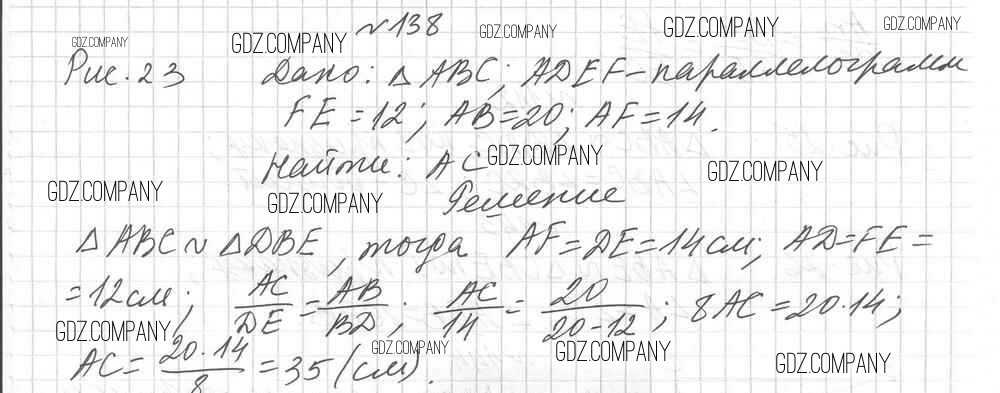 №138
Рис. 23 Дано: △ ABC; ADEF - параллелограмм
FE = 12; AB = 20; AF = 14.
Найти: AC
Решение
△ ABC ~ △DBE, тогда AF = DE = 14 см; AD = FE =
= 12 см; AC/DE = AB/BD; AC/14 = 20/(20-12); 8 AC = 20·14;
AC = 20·14/8 = 35 (см).
GDZ.COMPANY
GDZ.COMPANY
GDZ.COMPANY
GDZ.COMPANY
GDZ.COMPANY
GDZ.COMPANY
GDZ.COMPANY
GDZ.COMPANY
GDZ.COMPANY
GDZ.COMPANY
GDZ.COMPANY
GDZ.COMPANY
GDZ.COMPANY